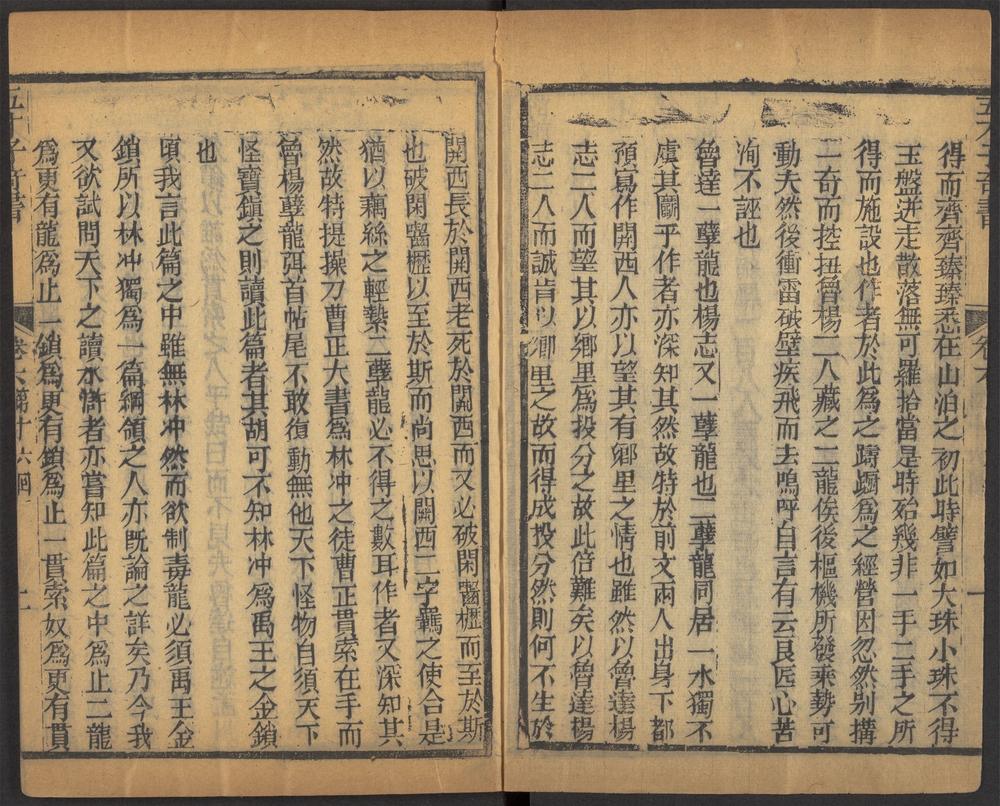 得而齊齊臻臻悉在山泊之初此時譬如大珠小珠不得
玉盤迸走散落無可羅拾當是時殆幾非一手二手之所
得而施設也作者於此為之躊躇為之經營因忽然別搆
一奇而控扭魯楊二人藏之二龍俟後樞機所發乘勢可
動夫然後衝雷破壁疾飛而去嗚呼自言有云良匠心苦
洵不誣也
魯達一孽龍也楊志又一孽龍也二孽龍同居一水獨不
虞其鬭乎作者亦深知其然故特於前文兩人出身下都
預寫作關西人亦以望其有鄉里之情也雖然以魯達楊
志二人而望其以鄉里為投分之故此倍難矣以魯達楊
志二人而誠肯以鄉里之故而得成投分然則何不生於
關西長於關西老死於關西而又必破閑齧櫪而至於斯
也破閑齧櫪以至於斯而尚思以關西二字羈之使合是
猶以藕絲之輕縶二孽龍必不得之數耳作者又深知其
然故特提操刀曹正大書為林冲之徒曹正貫索在手而
魯楊孽龍弭首帖尾不敢復動無他天下怪物自須天下
怪寶鎮之則讀此篇者其胡可不知林冲為禹王之金鎖
也
頃我言此篇之中雖無林冲然而欲制毒龍必須禹王金
鎖所以林冲獨為一篇綱領之人亦既論之詳矣乃今我
又欲試問天下之讀水滸者亦嘗知此篇之中為止二龍
為更有龍為止一鎖為更有鎖為止一貫索奴為更有貫
卷六第十六囘